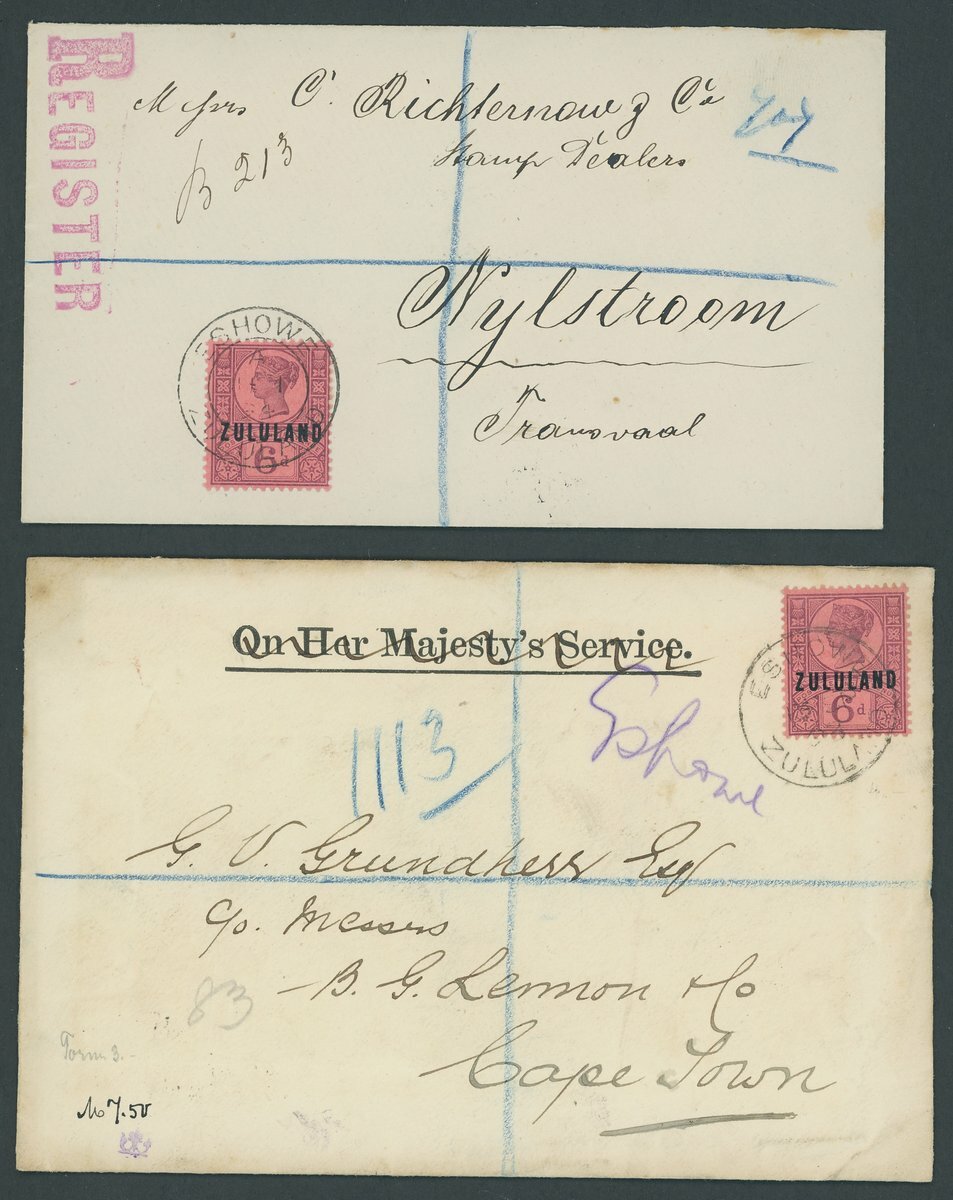 REGISTER
Messrs C. Richternow & Co
Stamp Dealers
B 213
Nylstroom
Transvaal
ESHOWE
ZULULAND
ZULULAND
6d
On Her Majesty's Service.
ESHOWE
ZULULAND
ZULULAND
6d.
1113
Eshowe
G. V. Grundherr Esq
c/o. Messrs
B. G. Lennon & Co
83
Cape Town
Form 3.-
7.50